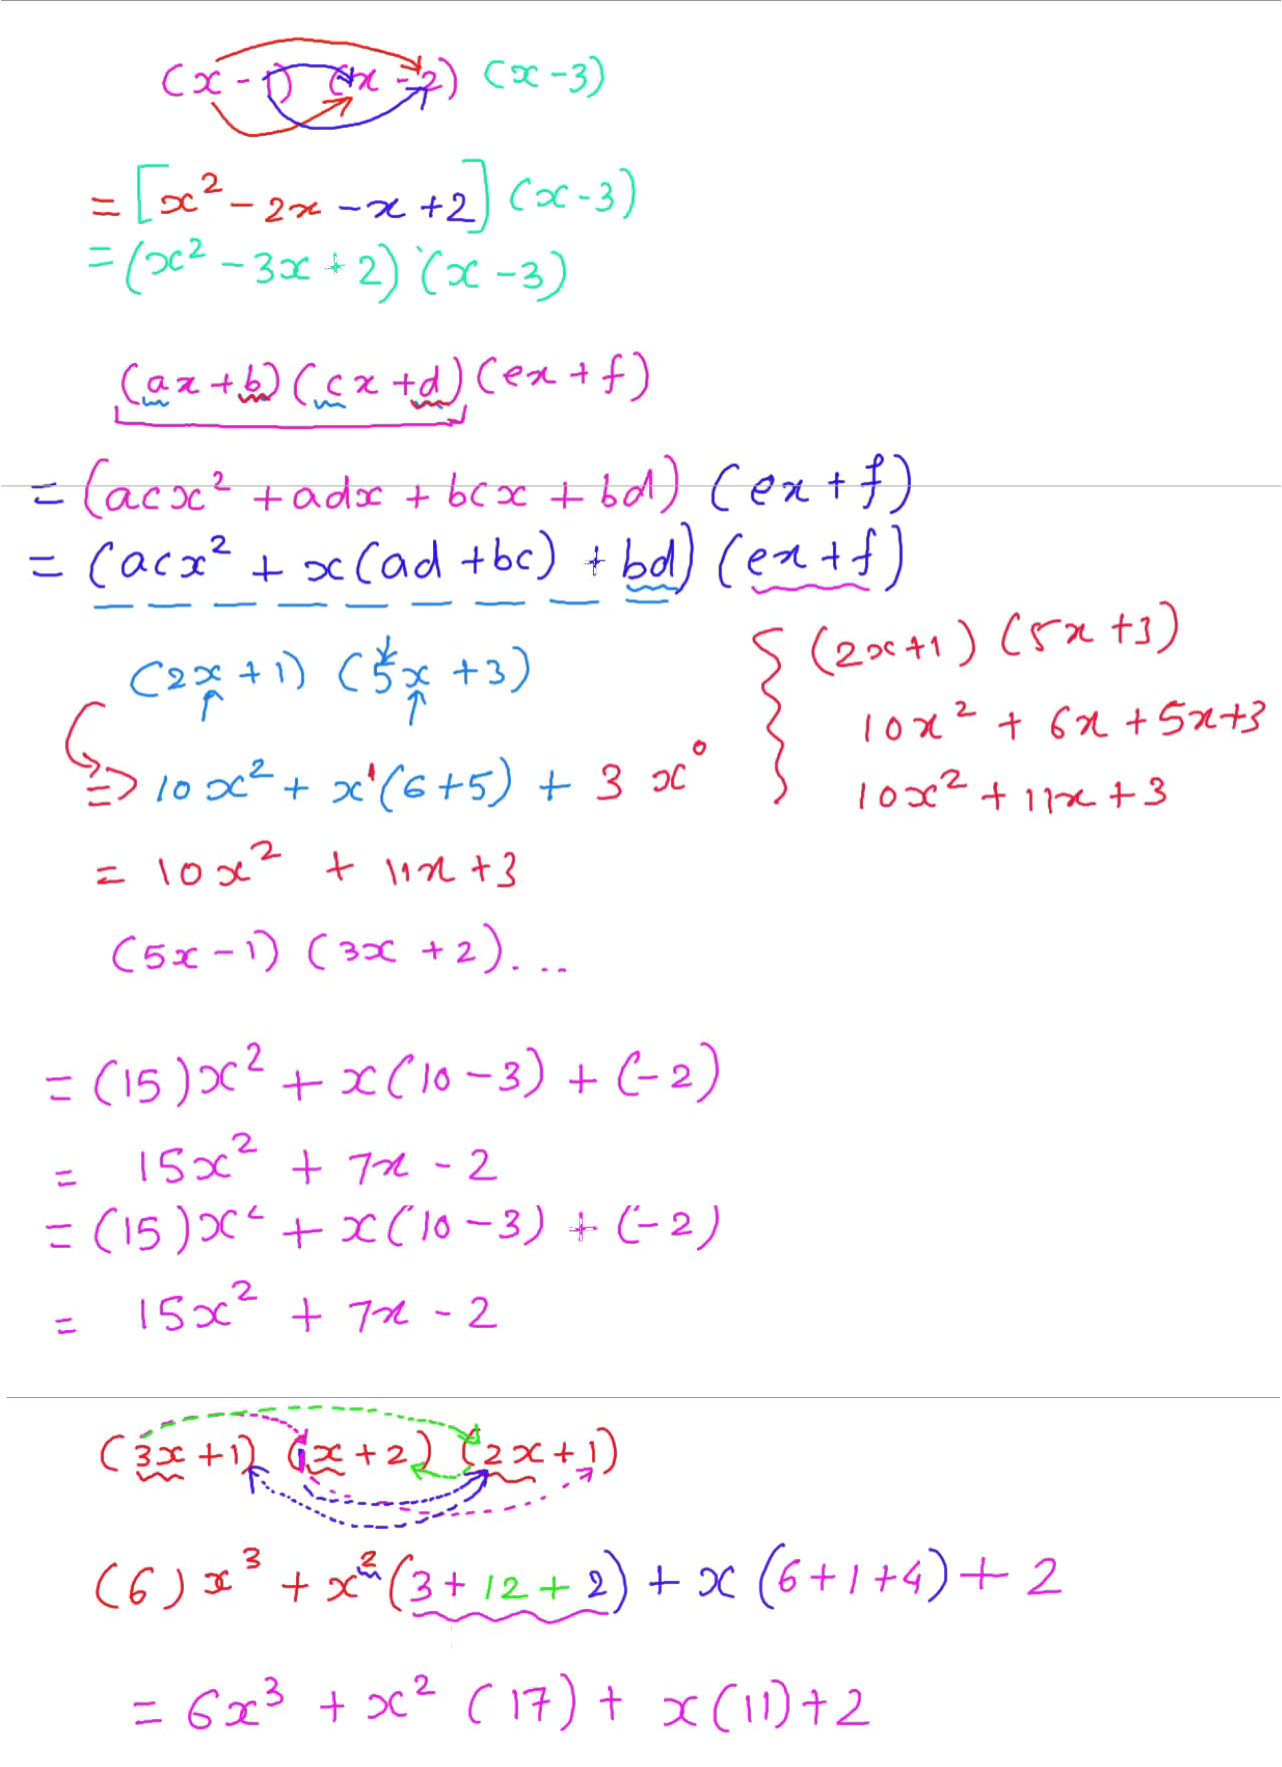 (x - 1) (x - 2) (x - 3)
= [x² - 2x - x + 2] (x - 3)
= (x² - 3x + 2) (x - 3)
(ax + b) (cx + d) (ex + f)
= (acx² + adx + bcx + bd) (ex + f)
= (acx² + x(ad + bc) + bd) (ex + f)
(2x + 1) (5x + 3)
=> 10x² + x¹(6 + 5) + 3x⁰
= 10x² + 11x + 3
{ (2x + 1) (5x + 3)
10x² + 6x + 5x + 3
10x² + 11x + 3
(5x - 1) (3x + 2)...
= (15)x² + x(10 - 3) + (-2)
= 15x² + 7x - 2
= (15)x² + x(10 - 3) + (-2)
= 15x² + 7x - 2
(3x + 1) (1x + 2) (2x + 1)
(6)x³ + x²(3 + 12 + 2) + x(6 + 1 + 4) + 2
= 6x³ + x²(17) + x(11) + 2